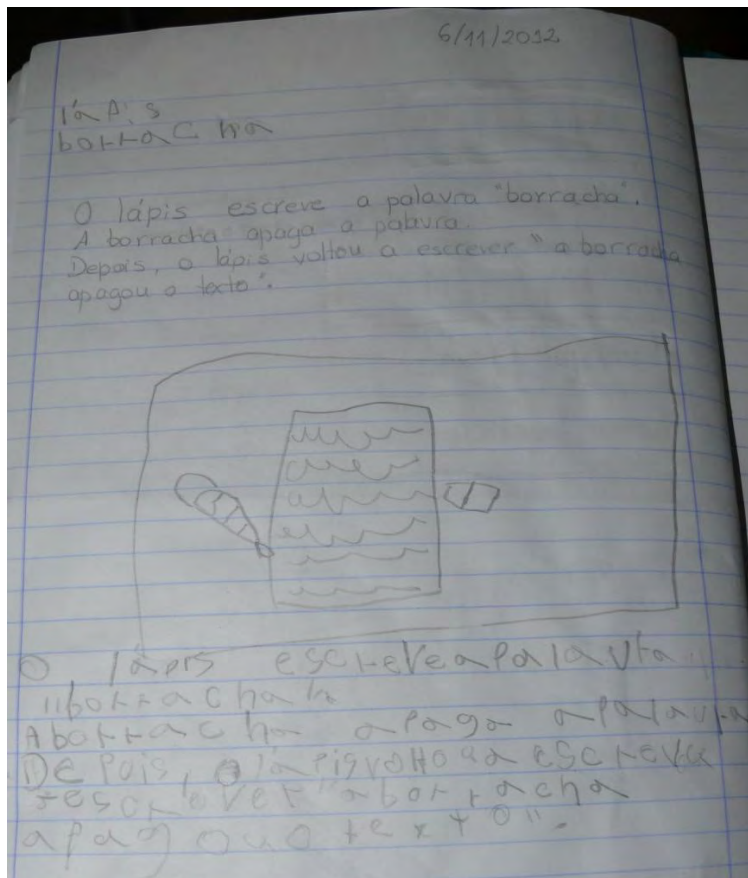 6/11/2012
lápis
borracha
O lápis escreve a palavra "borracha".
A borracha apaga a palavra.
Depois, o lápis voltou a escrever "a borracha
apagou o texto".
O lápis escreve a palavra
"borracha"
A borracha apaga a palavra
Depois, o lápis voltou a escrever
a borracha
apagou o texto".